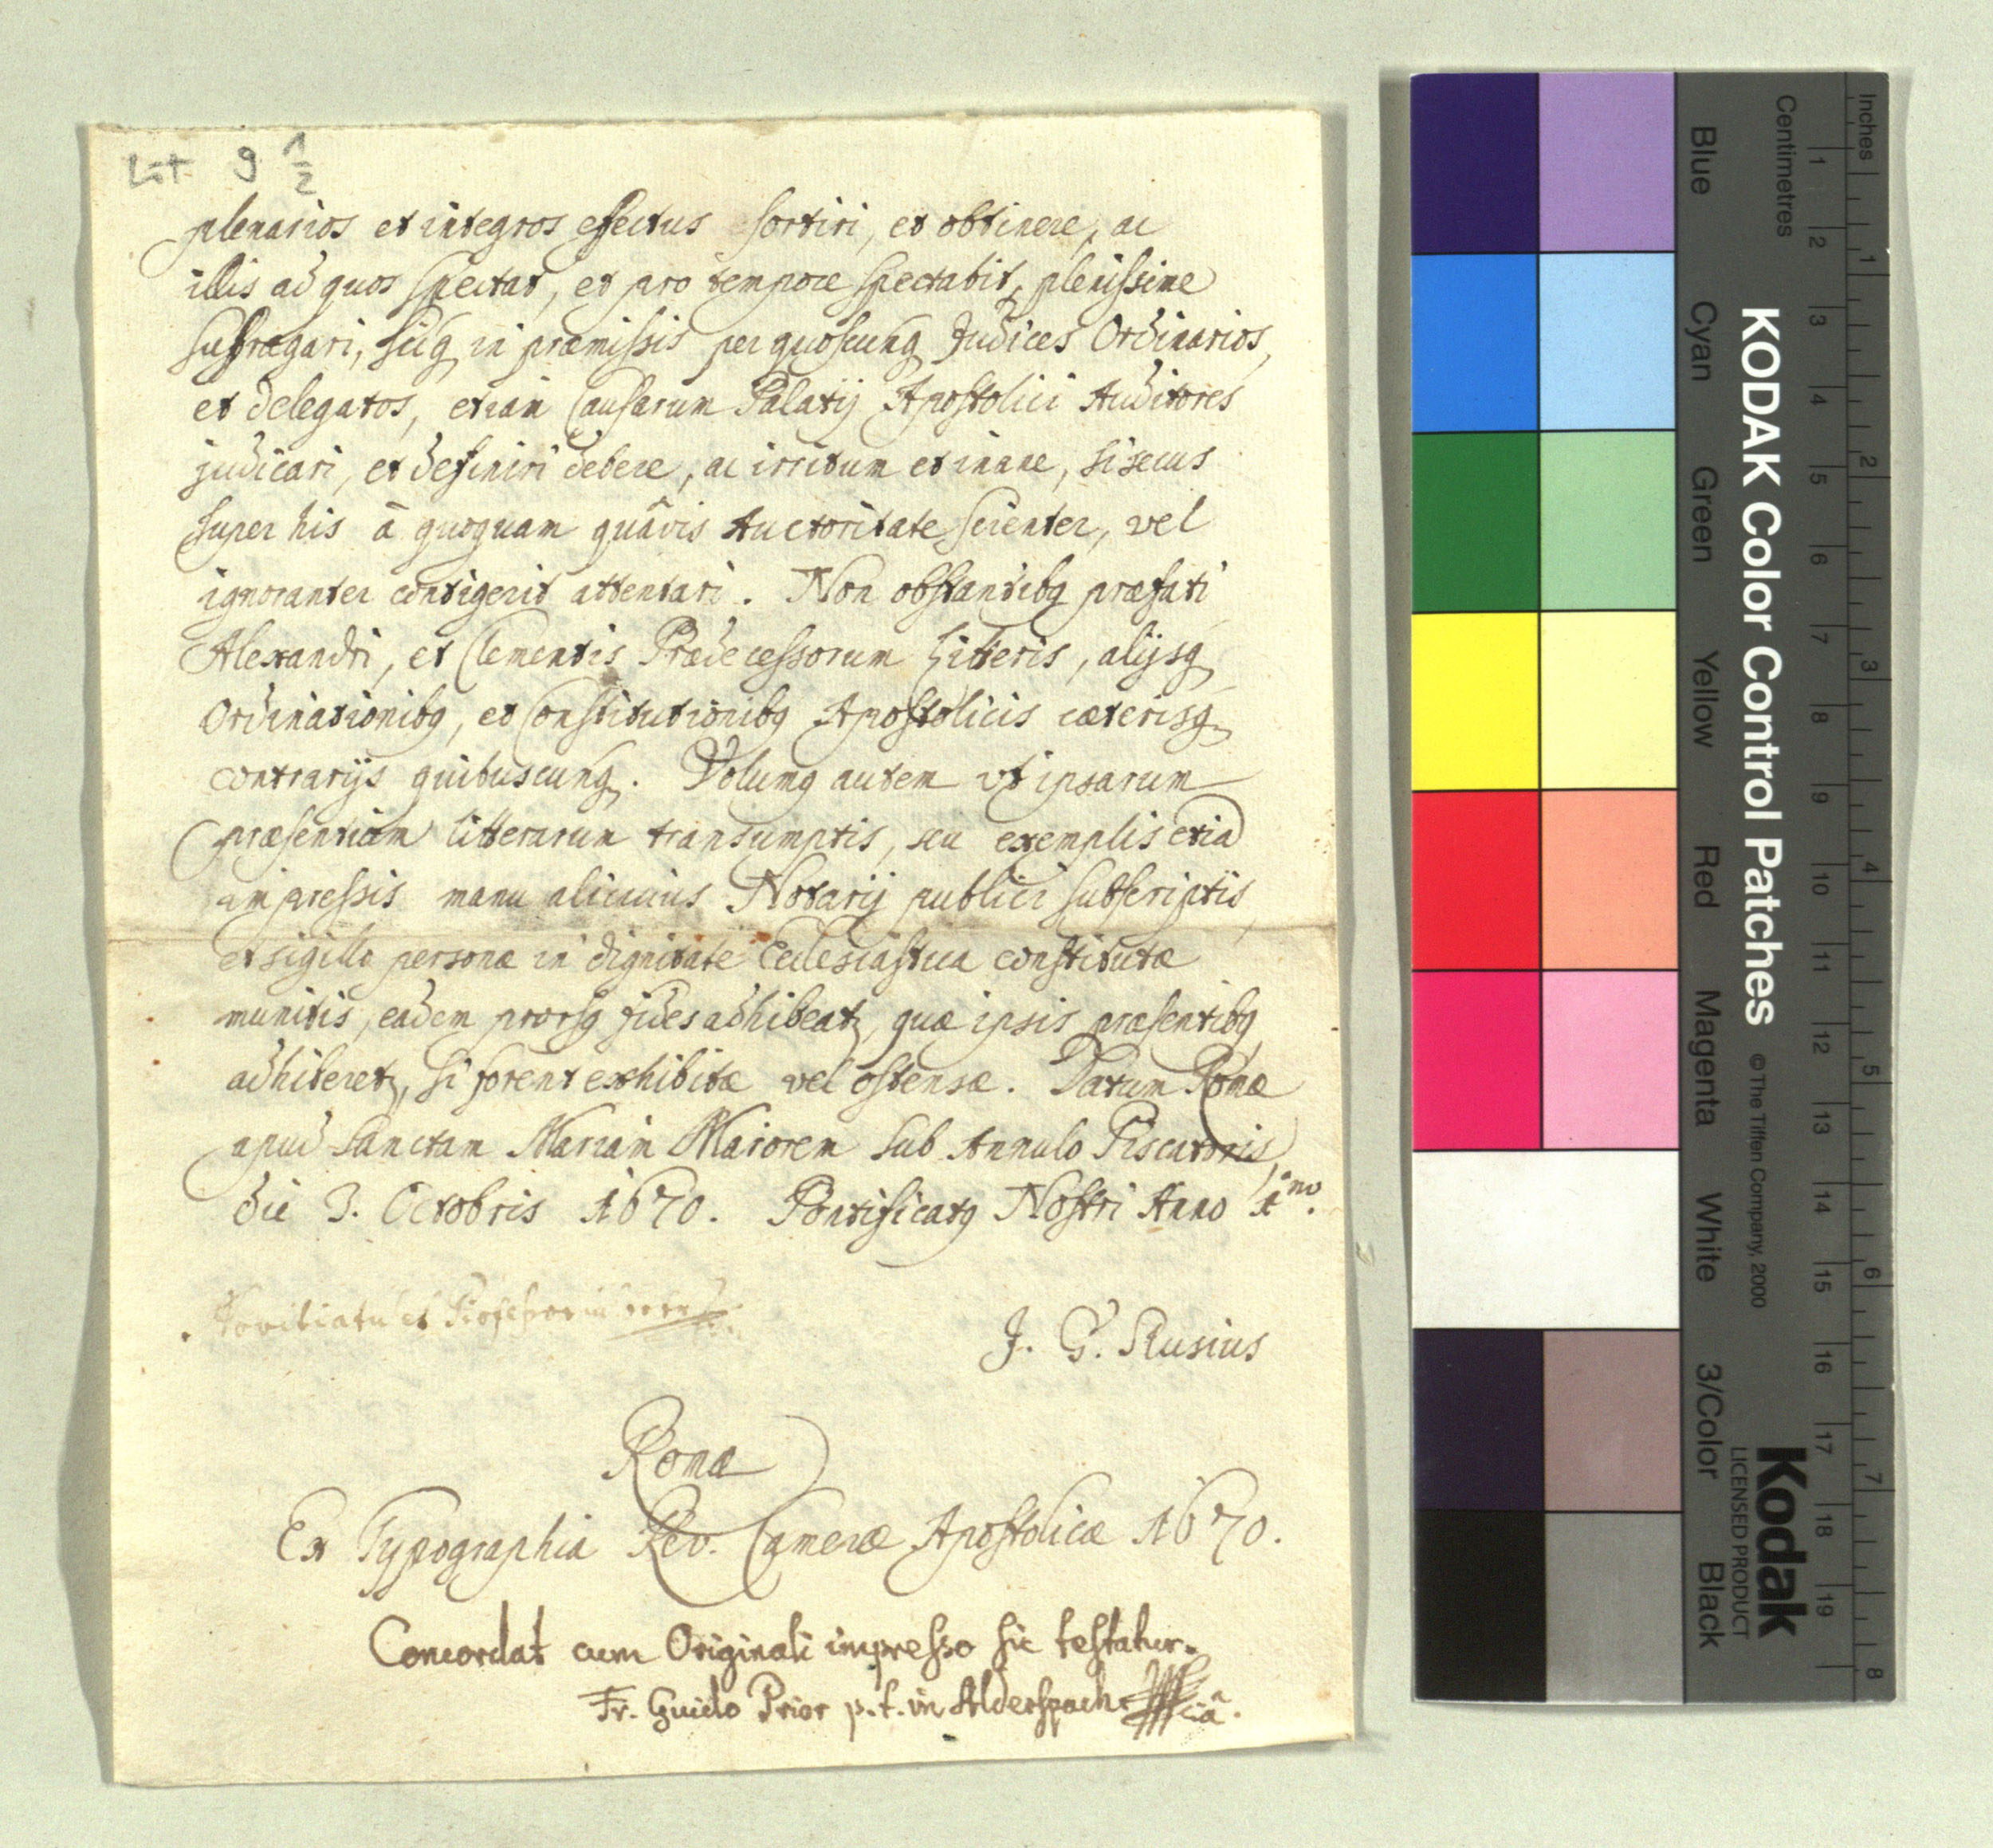 Lit 9 1/2
plenarios et integros effectus sortiri, et obtinere, ac
illis ad quos spectat, et pro tempore spectabit, plenissime
suffragari, sicq in præmissis per quoscunq Judices Ordinarios,
et delegatos, etiam Causarum Palatij Apostolici Auditores
judicari, et definiri debere, ac irritum et inane, si secus
super his â quoquam quâvis Auctoritate scienter, vel
ignoranter contigerit attentari. Non obstantibq præfati
Alexandri, et Clementis Prædecessorum Litteris, alijsq
Ordinationibq, et Constitutionibq Apostolicis cæterisq
contrarijs quibuscunq. Volumq autem vt ipsarum
præsentium litterarum transumptis, seu exemplis etiã
impressis manu alicuius Notarij publici subscriptis,
et sigillo personæ in dignitate Ecclesiastica constitutæ
munitis, eadem prorsq fides adhibeatr, quæ ipsis præsentibq
adhiberetr, si forent exhibitæ vel ostensæ. Datum Romæ
apud Sanctam Mariam Maiorem sub Annulo Piscatoris,
die 3. Octobris 1670. Pontificatq Nostri Anno 1mo.
J. G. Slusius
Romæ
Ex Typographia Rev. Cameræ Apostolicæ 1670.
Concordat cum Originali impresso sic testatur.
Fr. Guido Prior p.t. in Alderspach
Inches
Centimetres
1 2 3 4 5 6 7 8 9 10 11 12 13 14 15 16 17 18 19
1 2 3 4 5 6 7 8
KODAK Color Control Patches © The Tiffen Company, 2000
Kodak
LICENSED PRODUCT
Blue Cyan Green Yellow Red Magenta White 3/Color Black